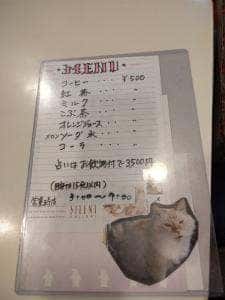 MENU
コーヒー・・・・¥500
紅茶・・・・〃
ミルク・・・・〃
こぶ茶・・・・〃
オレンジジュース・・・〃
メロンソーダ水・・・〃
コーラ・・・・〃
占いはお飲物付で3500円
営業時間
SILENT